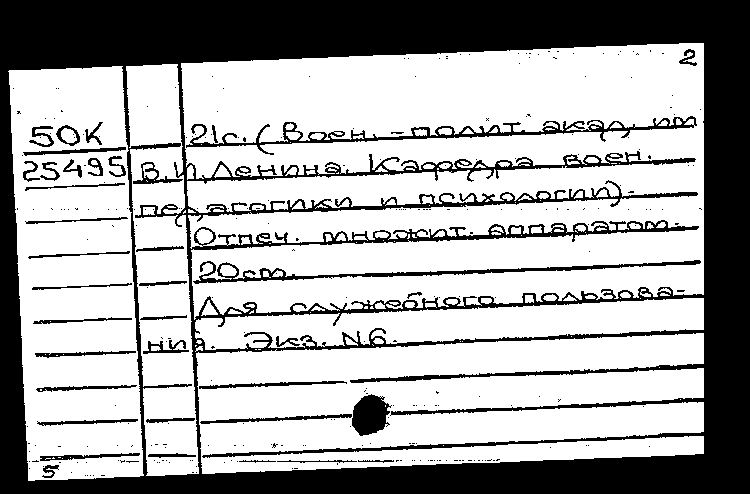 2
50К 21с. (Воен.-полит. акад. им
25495 В.И.Ленина. Кафедра воен.
педагогики и психологии).
Отпеч. множит. аппаратом.
20см.
Для служебного пользова-
ния. Экз. N6.
5